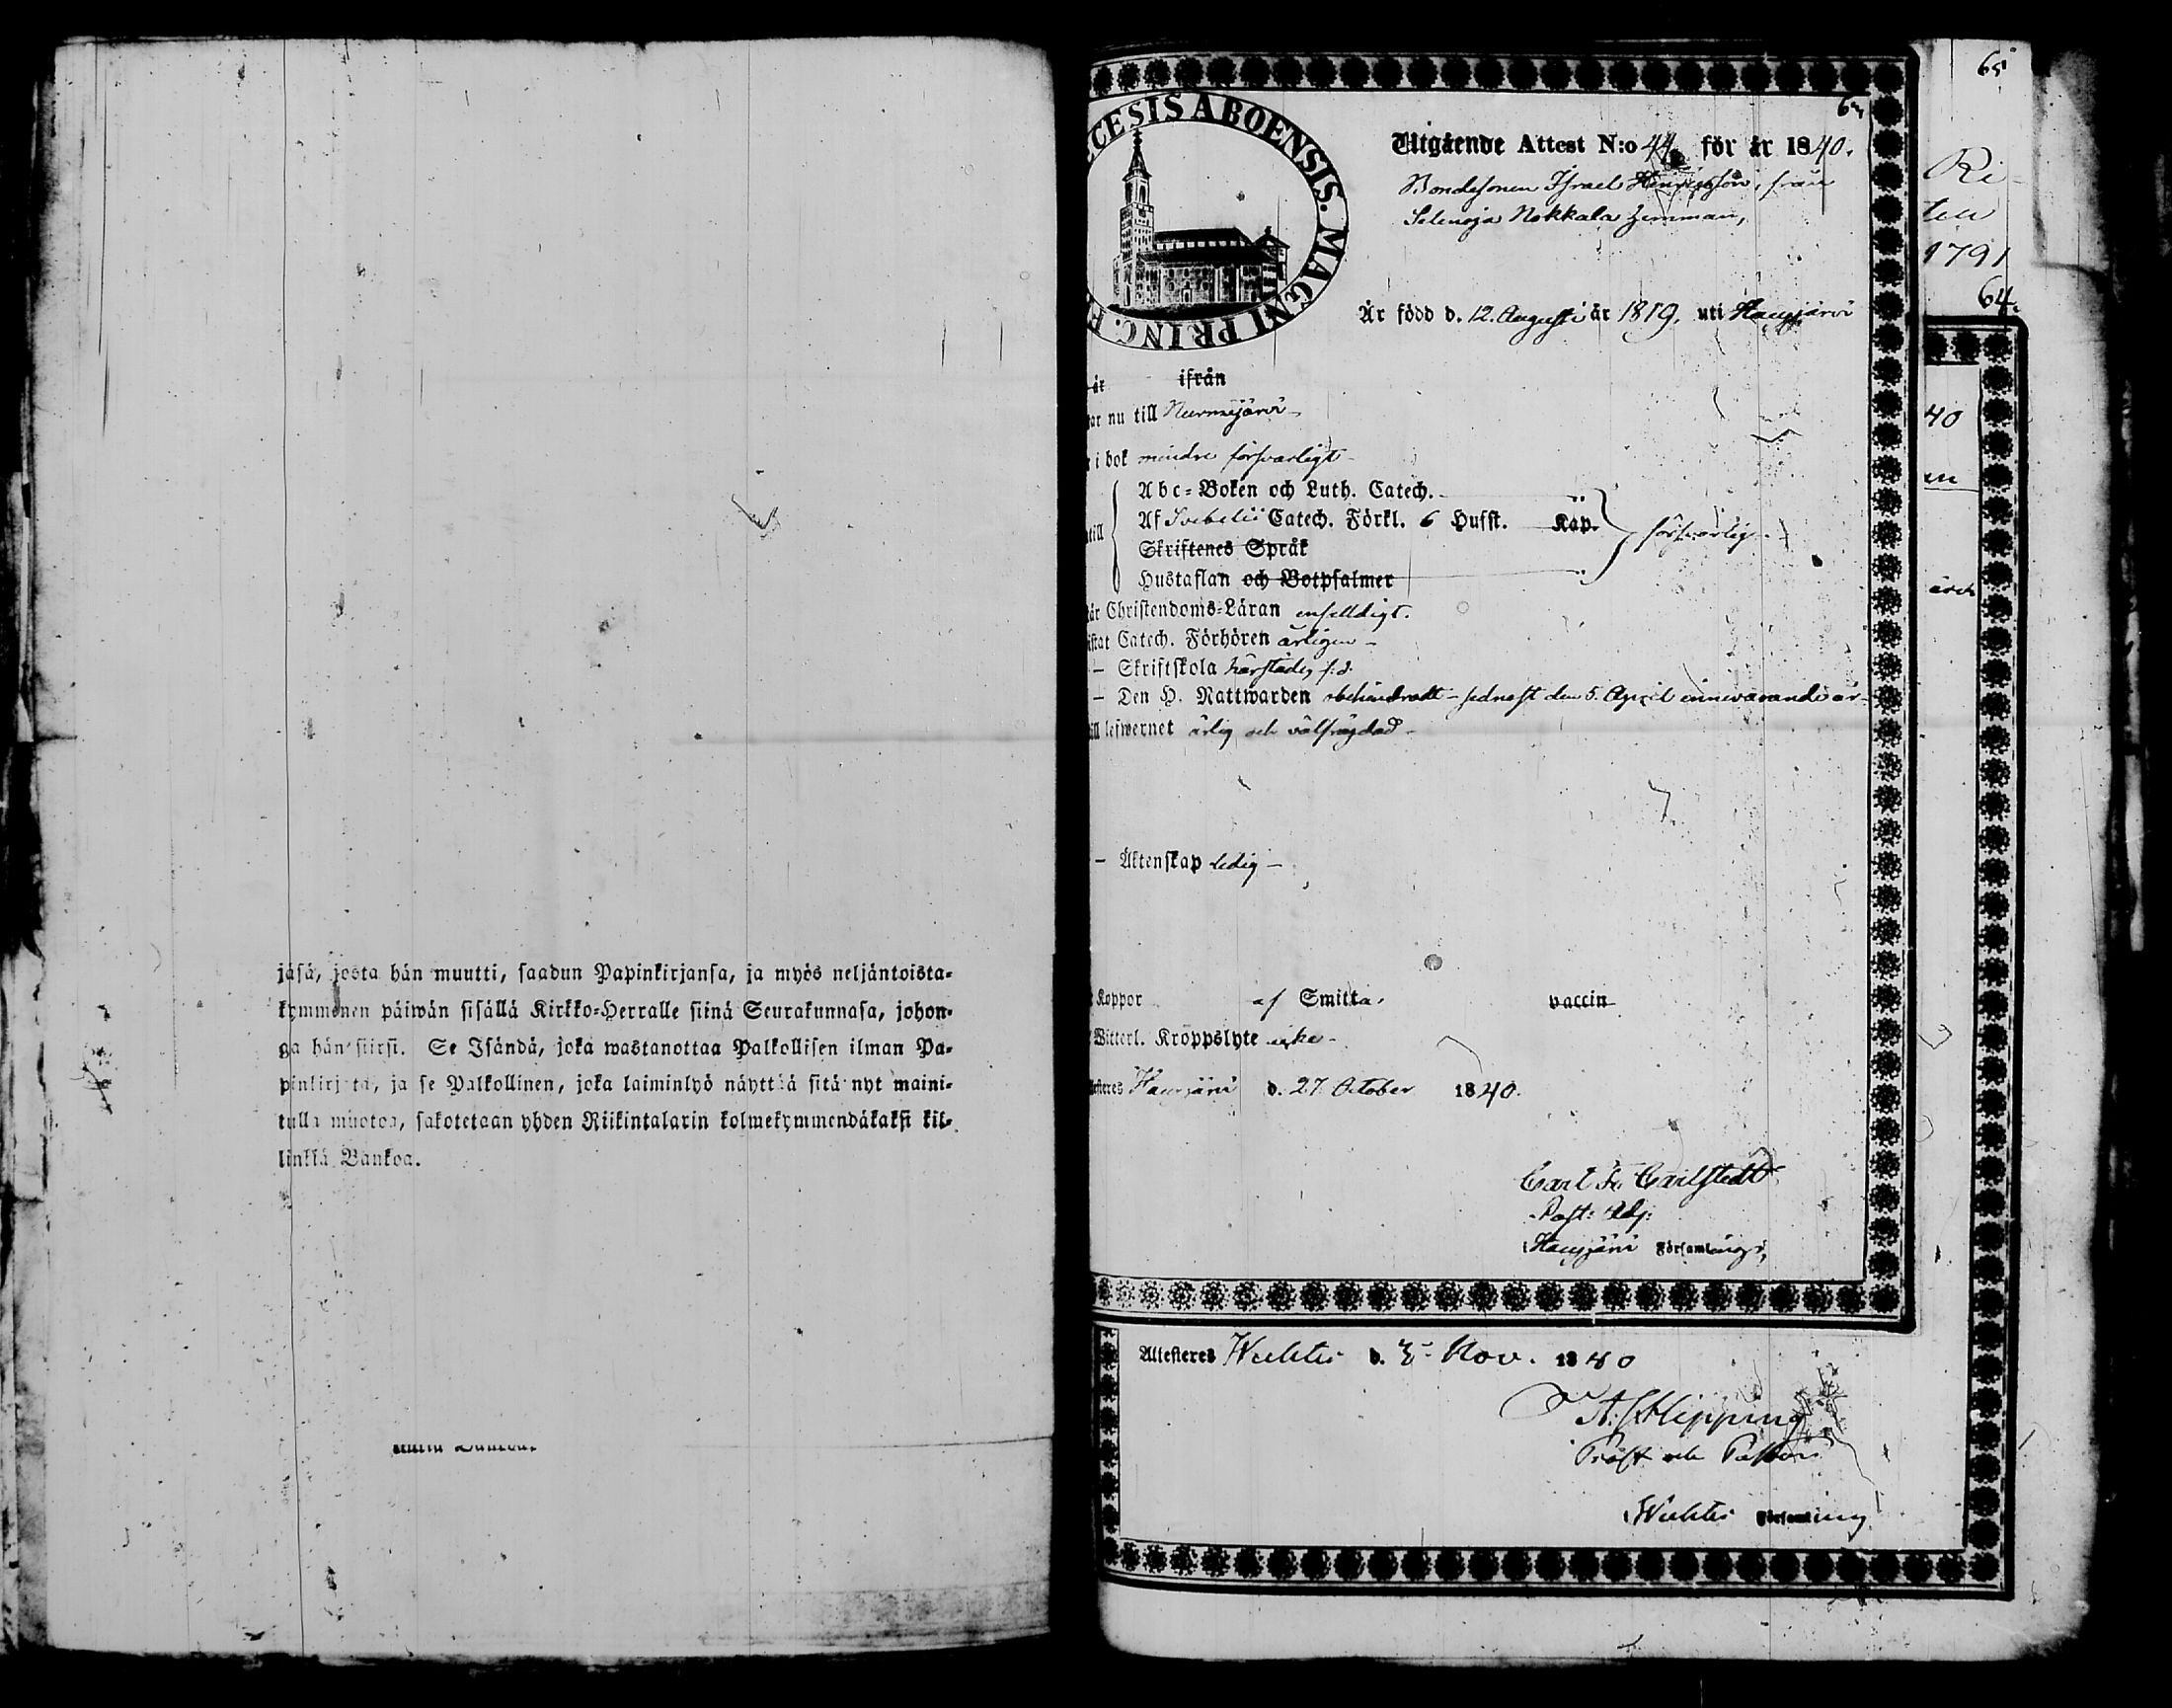 jäsä, josta hän muutti, saadun Papinkirjansa, ja myös neljäntoista-
kymmenen päiwän sisällä Kirkko-Herralle siinä Seurakunnasa, johon-
ga hän siirsi. Se Isändä, joka wastanottaa Palkollisen ilman Pa-
pinkirjata, ja se Palkollinen, joka laiminlyö näyttää sitä nyt maini-
tulla muotoa, sakotetaan yhden Riikintalarin kolmekymmendäkaksi kil-
linkiä Bankoa.
65
63
CESIS ABOENSIS. MAGNI PRINC. F
Utgående Attest N:o 44 för år 1840.
Bondesonen Israel Henriksson, från
Selenoja Nokkala hemman,
Är född d. 12. Augusti år 1819, uti Hausjärvi
år ifrån
ar nu till Nurmijärvi
i bok mindre försvarligt
Abc-Boken och Luth. Catech.
Af Svebelii Catech. Förkl. 6 Hufst. Kap.
till försvarlig
Skriftenes Språk
Hustaflan och Botpsalmer
är Christendoms-Läran enfelldigt.
istat Catech. Förhören årligen
— Skriftskola härstädes f.d.
— Den H. Nattwarden obehindradt - sednast den 5. April innevarande år
ill lefwernet ärlig och välfrägdad
— Äktenskap ledig —
Koppor af Smitta. vaccin
Witterl. Kroppslyte icke
esteres Hausjärvi d. 27 October 1840.
Carl Fr. Carlstedt
Past: Adj:
i Hausjärvi Församlings
Attesteres Wichtis d. 3 Nov. 1840
A: J. Hipping
Prost och Pastor
i Wichtis Församling
Ri-
ten
1791
64.
40
en
ärvi